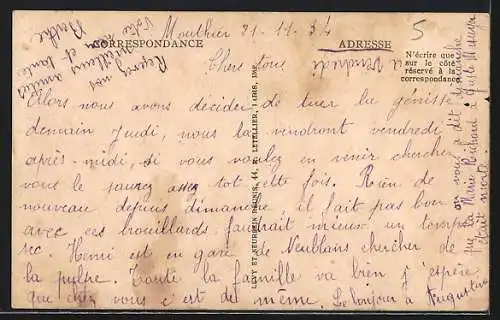 Mouthier 21-11-34
5
CORRESPONDANCE
ADRESSE
N'écrire que
sur le côté
réservé à la
correspondance
Chers tous
à Vendredi
Alors nous avons décider de tuer la génisse
demain jeudi, nous la vendront vendredi
après-midi, si vous voulez en venir chercher
vous le saurez assez tot cette fois. Rien de
nouveau depuis dimanche il fait pas bon
avec ces brouillards faudrait mieux un temps
sec. Henri est en gare de Neublans chercher de
la pulpe. Toute la famille va bien j'espère
que chez vous c'est de même. Le bonjour à Augustine
on nous a dit dimanche
que la Marie Richard
était morte.
Recevez nos
meilleurs
amitiés
et toutes
Votre
Berthe
LEVY ET NEURDEIN RÉUNIS, 44, R. LETELLIER, PARIS, IMP.